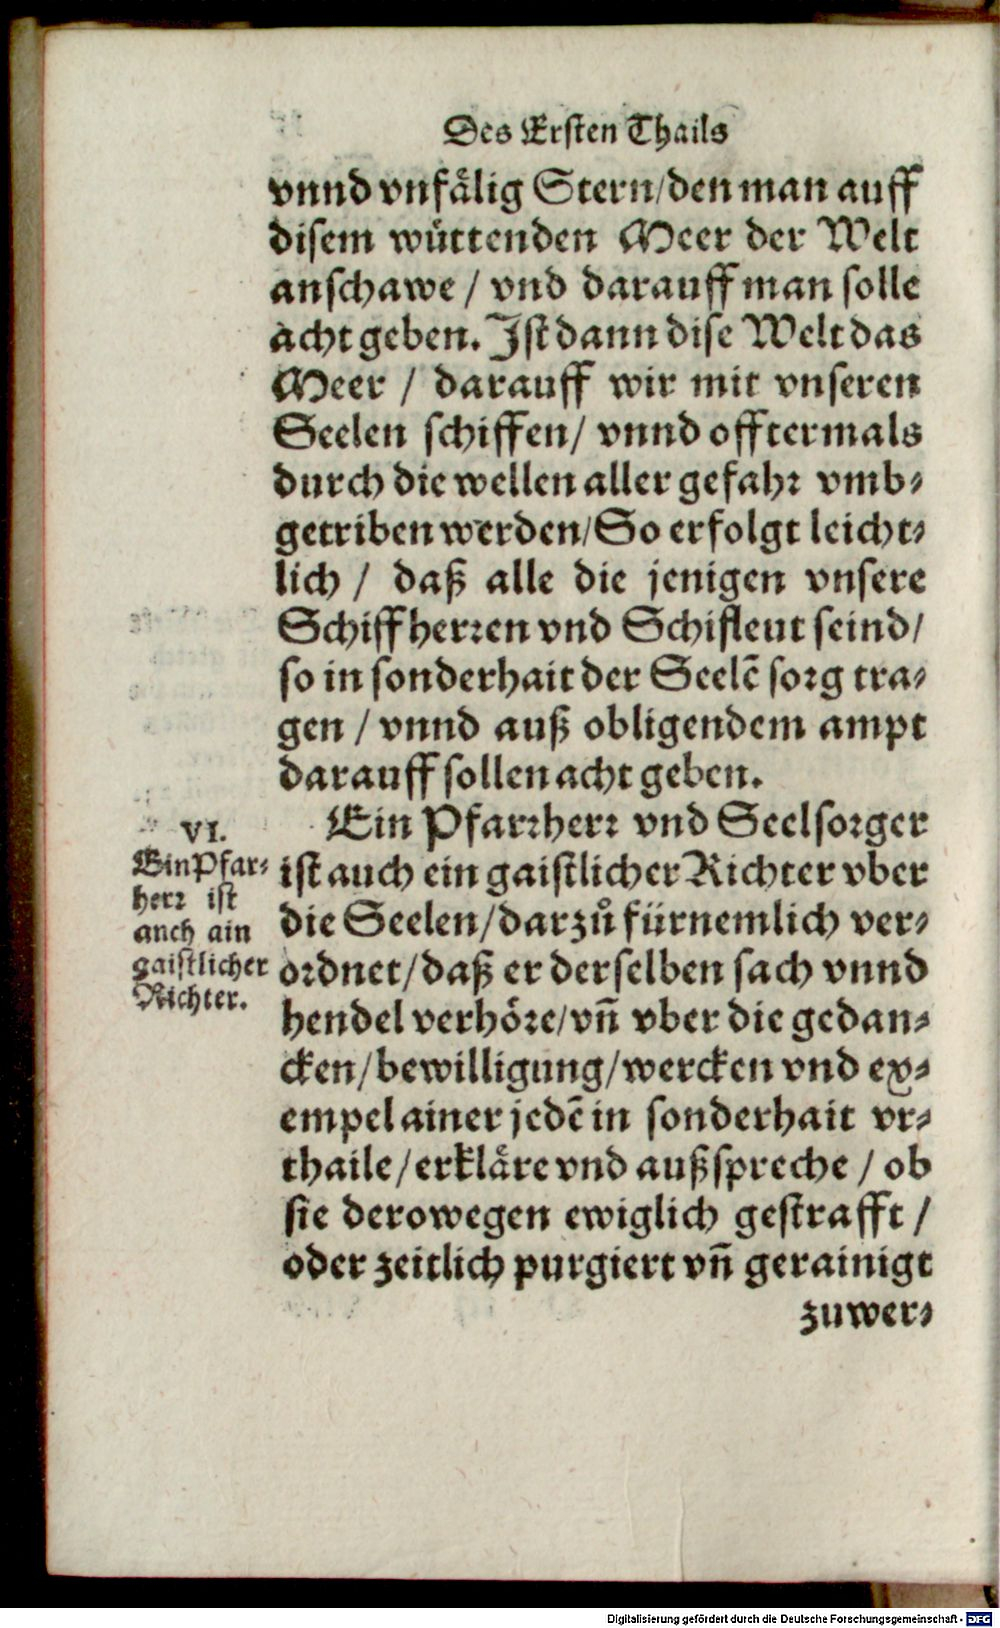 Des Ersten Thails
vnnd vnfälig Stern/den man auff
disem wüttenden Meer der Welt
anschawe / vnd darauff man solle
acht geben. Ist dann dise Welt das
Meer / darauff wir mit vnseren
Seelen schiffen/ vnnd offtermals
durch die wellen aller gefahr vmb-
getriben werden/So erfolgt leicht-
lich / daß alle die jenigen vnsere
Schiffherren vnd Schifleut seind/
so in sonderhait der Seelẽ sorg tra-
gen / vnnd auß obligendem ampt
darauff sollen acht geben.
VI.
Ein Pfar-
herr ist
auch ain
gaistlicher
Richter.
Ein Pfarrherr vnd Seelsorger
ist auch ein gaistlicher Richter vber
die Seelen/darzů fürnemlich ver-
ordnet/daß er derselben sach vnnd
hendel verhöre/vñ vber die gedan-
cken/bewilligung/wercken vnd ex-
empel ainer jedẽ in sonderhait vr-
thaile/erkläre vnd außspreche / ob
sie derowegen ewiglich gestrafft /
oder zeitlich purgiert vñ gerainigt
zuwer-
Digitalisierung gefördert durch die Deutsche Forschungsgemeinschaft - DFG